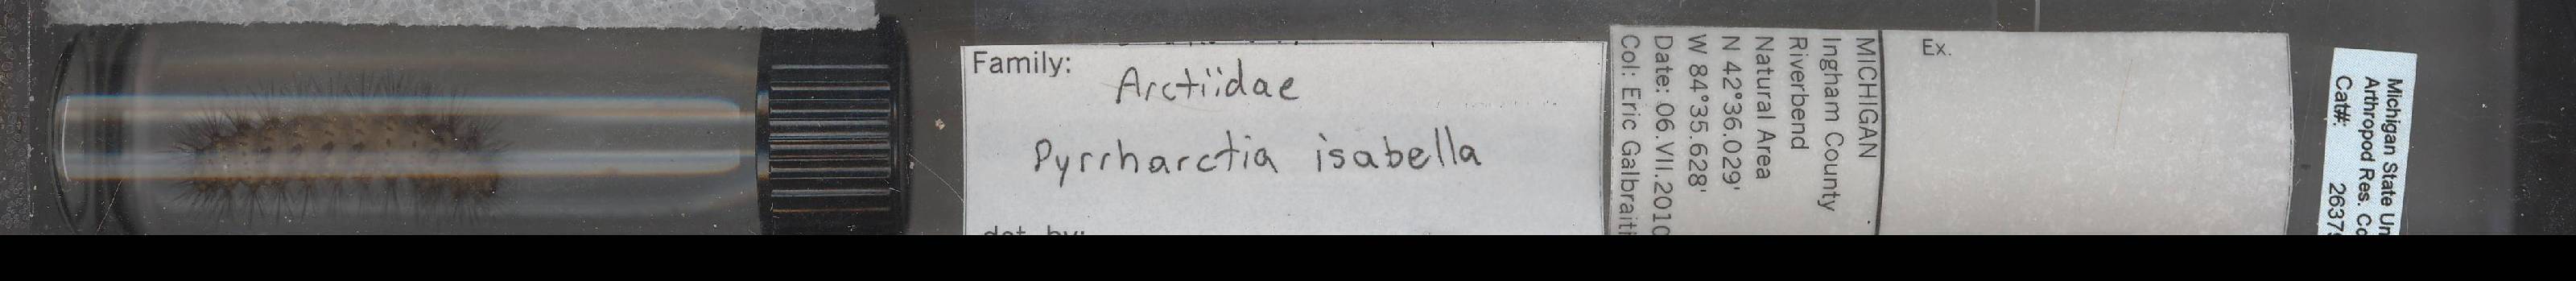 Family:
Arctiidae
Pyrrharctia isabella
det. by:
MICHIGAN
Ingham County
Riverbend
Natural Area
N 42°36.029'
W 84°35.628'
Date: 06.VII.2010
Col: Eric
Ex.
Michigan State
Arthropod Res.
Cat#: